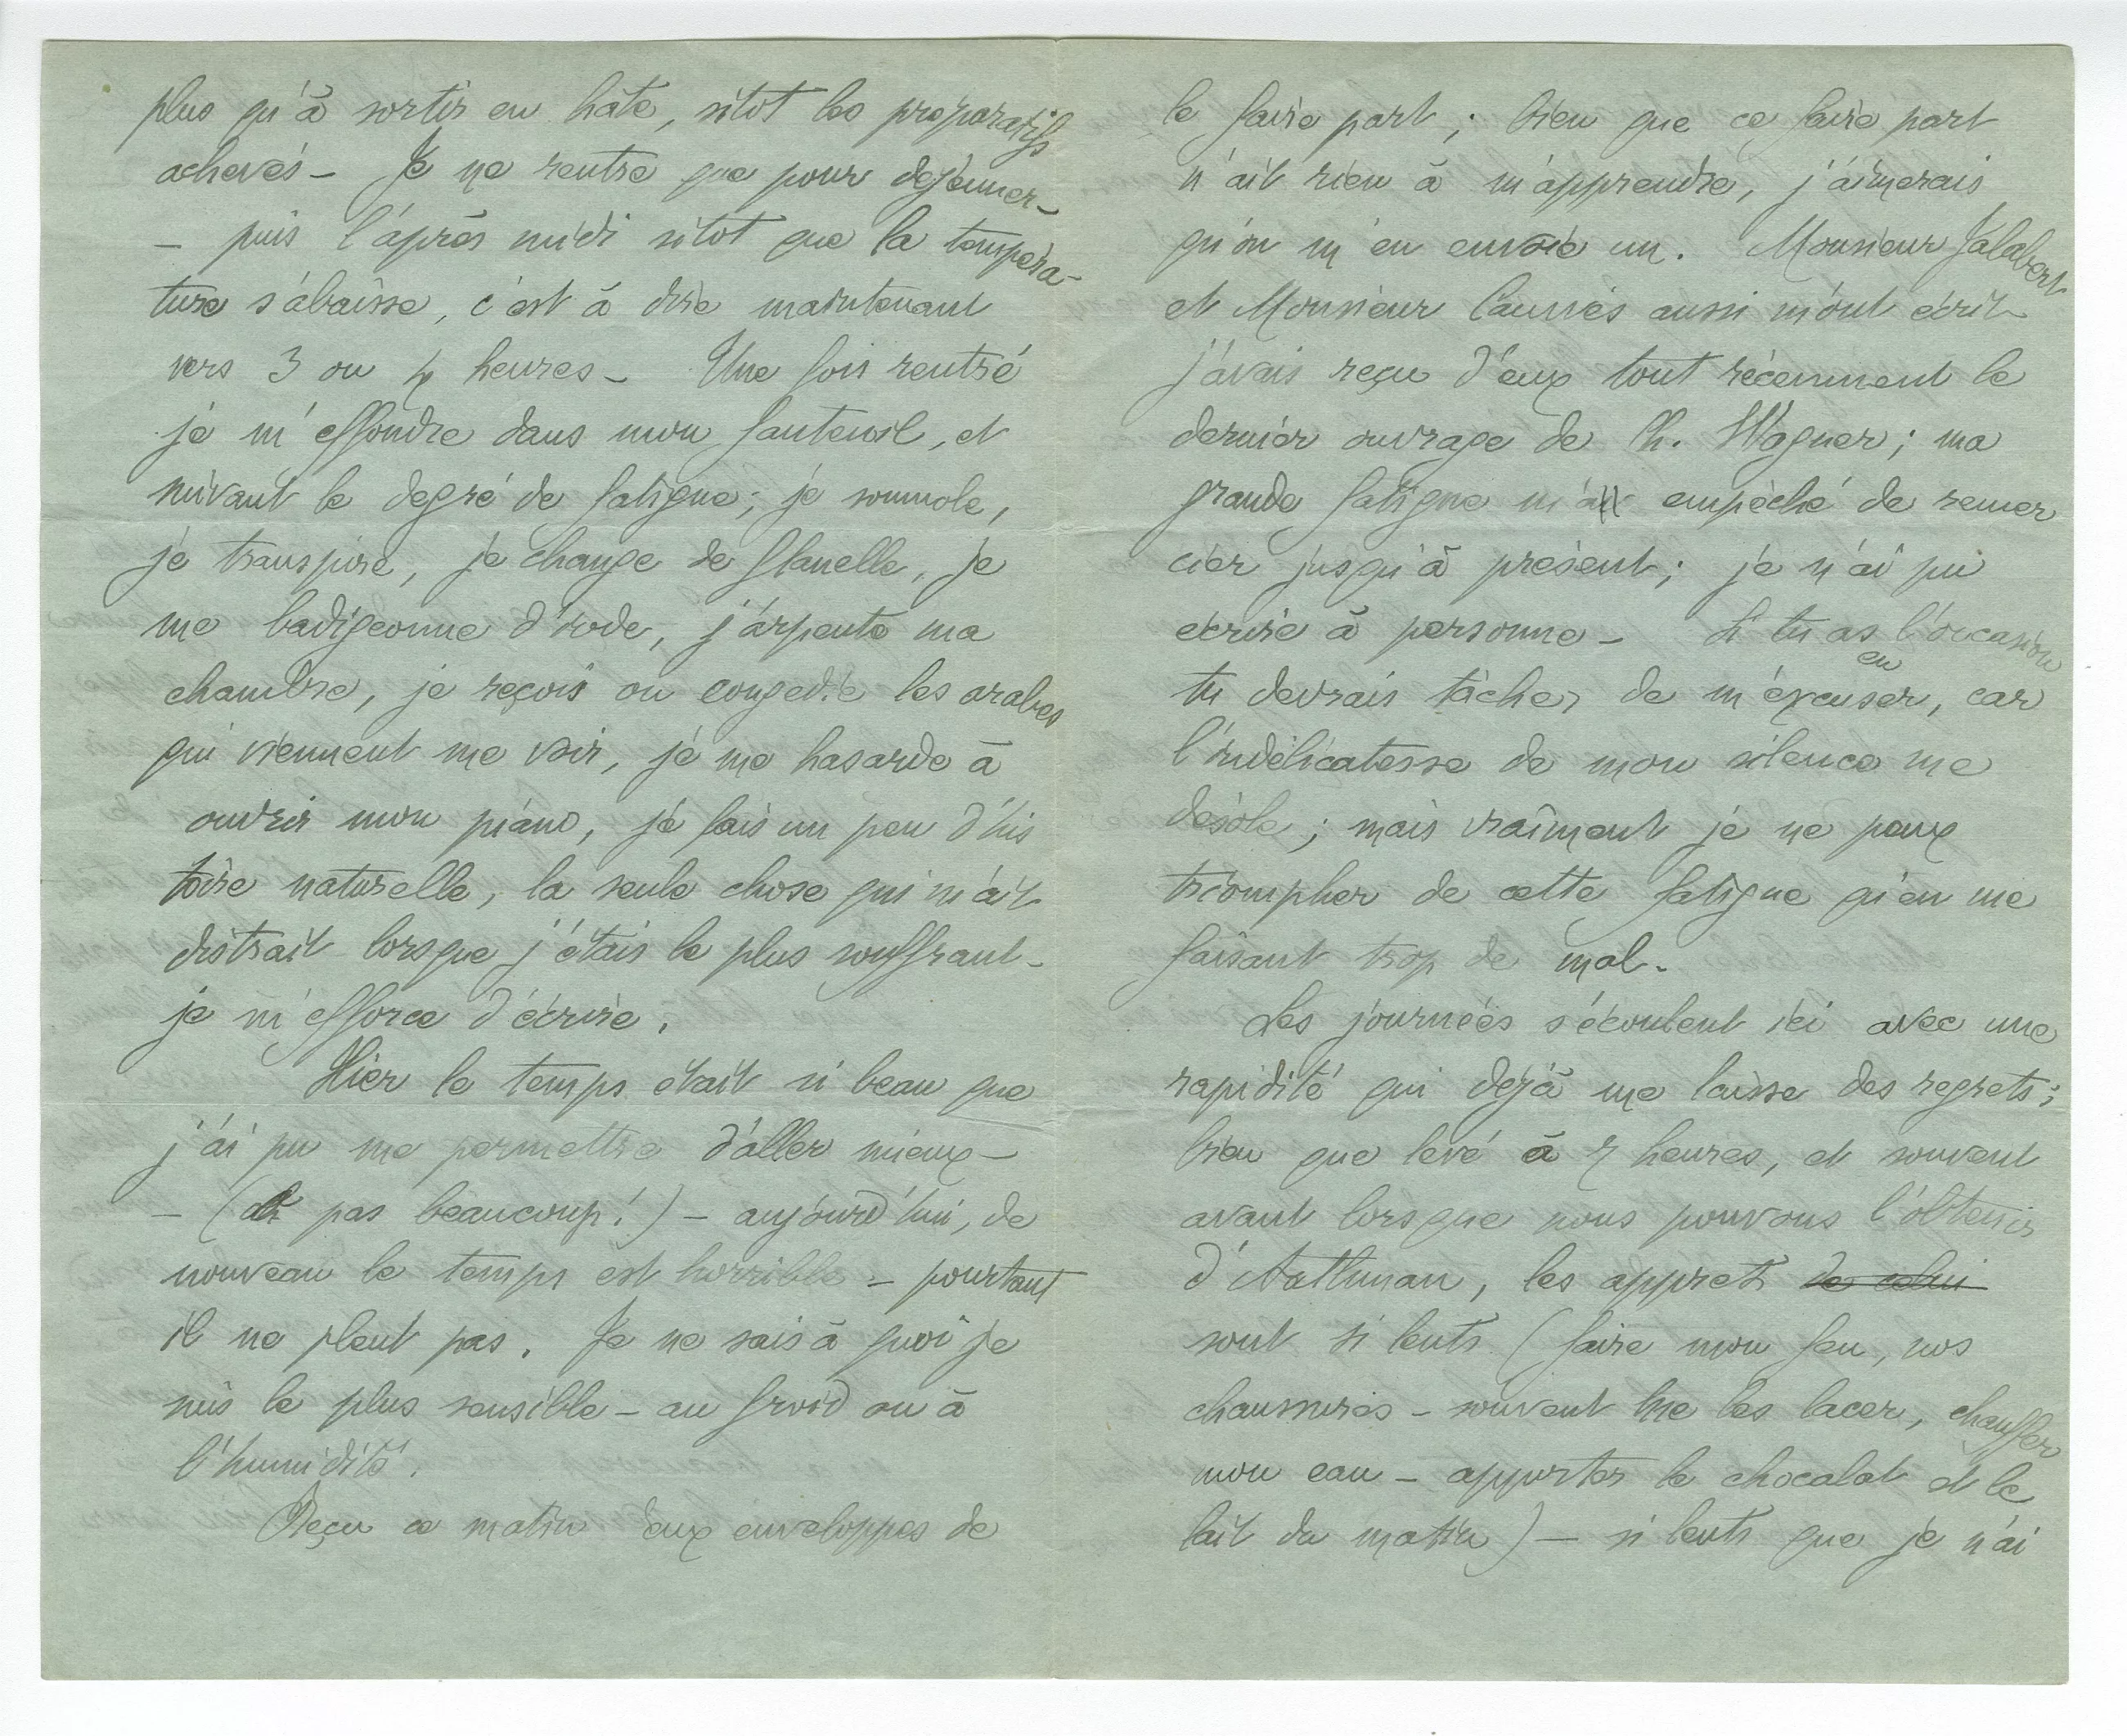 plus qu'à sortir en hâte, sitot les préparatifs
achevés – Je ne rentre que pour dejeuner –
– puis l'après midi sitot que la tempéra-
ture s'abaisse, c'est à dire maintenant
vers 3 ou 4 heures – Une fois rentré
je m'effondre dans mon fauteuil, et
suivant le degré de fatigue; je somnole,
je transpire, je change de flanelle, je
me badigeonne d'iode, j'arpente ma
chambre, je reçois ou congédie les arabes
qui viennent me voir, je me hasarde à
ouvrir mon piano, je fais un peu d'his
toire naturelle, la seule chose qui m'ait
distrait lorsque j'étais le plus souffrant –
je m'efforce d'écrire.
Hier le temps était si beau que
j'ai pu me permettre d'aller mieux –
– (oh pas beaucoup!) – aujourd'hui, de
nouveau le temps est horrible – pourtant
il ne pleut pas. Je ne sais à quoi je
suis le plus sensible – au froid ou à
l'humidité.
Reçu ce matin deux enveloppes de
le faire part; bien que ce faire part
n'ait rien à m'apprendre, j'aimerais
qu'on m'en envoie un. Monsieur Jalabert
et Monsieur Causses aussi m'ont écrit
j'avais reçu d'eux tout récemment le
dernier ouvrage de Ch. Wagner; ma
grande fatigue m'a empêché de remer
cier jusqu'à présent; je n'ai pu
écrire à personne – Si tu as l'occasion
en
tu devrais tâcher de m'excuser, car
l'indélicatesse de mon silence me
désole; mais vraiment je ne peux
triompher de cette fatigue qu'en me
faisant trop de mal.
Les journées s'écoulent ici avec une
rapidité qui déjà me laisse des regrets;
bien que levé à 7 heures, et souvent
avant lorsque nous pouvons l'obtenir
d'Aathman, les apprets de celui
sont si lents (faire mon feu, nos
chaussures – souvent me les lacer, chauffer
mon eau – apporter le chocolat et le
lait du matin) – si lents que je n'ai